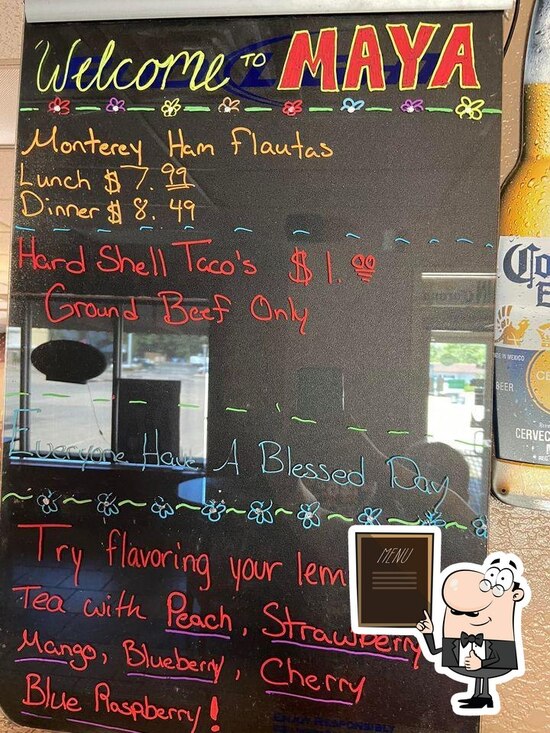 Welcome TO MAYA
Monterey Ham Flautas
Lunch $7.99
Dinner $8.49
Hard Shell Taco's $1.00
Ground Beef Only
Everyone Have A Blessed Day
Try flavoring your lem
Tea with Peach, Strawberry
Mango, Blueberry, Cherry
Blue Raspberry!
ENJOY RESPONSIBLY
MENU
Co
E
MADE IN MEXICO
BEER
CERVEC